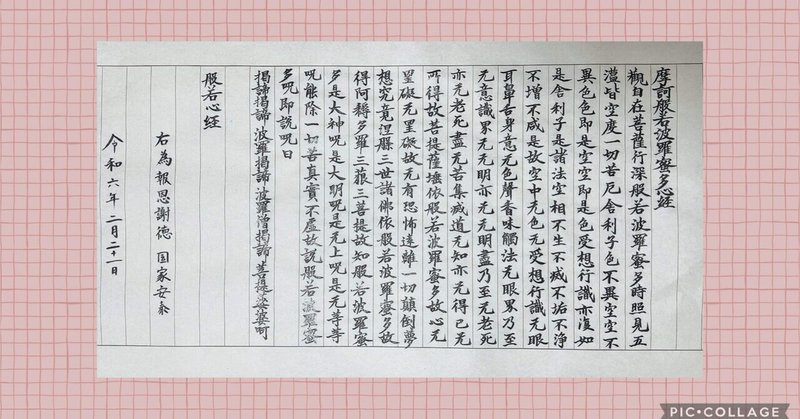 摩訶般若波羅蜜多心経
觀自在菩薩行深般若波羅蜜多時照見五
薀皆空度一切苦厄舎利子色不異空空不
異色色即是空空即是色受想行識亦復如
是舎利子是諸法空相不生不滅不垢不浄
不增不减是故空中无色无受想行識无眼
耳鼻舌身意无色聲香味觸法无眼界乃至
无意識界无无明亦无无明盡乃至无老死
亦无老死盡无苦集滅道无知亦无得已无
所得故菩提薩埵依般若波羅蜜多故心无
罣礙无罣礙故无有恐怖遠離一切顛倒夢
想究竟涅槃三世諸佛依般若波羅蜜多故
得阿耨多羅三藐三菩提故知般若波羅蜜
多是大神呪是大明呪是无上呪是无等等
呪能除一切苦真實不虚故説般若波羅蜜
多呪即説呪曰
揭諦揭諦 波羅揭諦 波羅僧揭諦 菩提娑婆呵
般若心経
右為報恩謝徳 国家安泰
令和六年 二月二十一日
PIC•COLLAGE